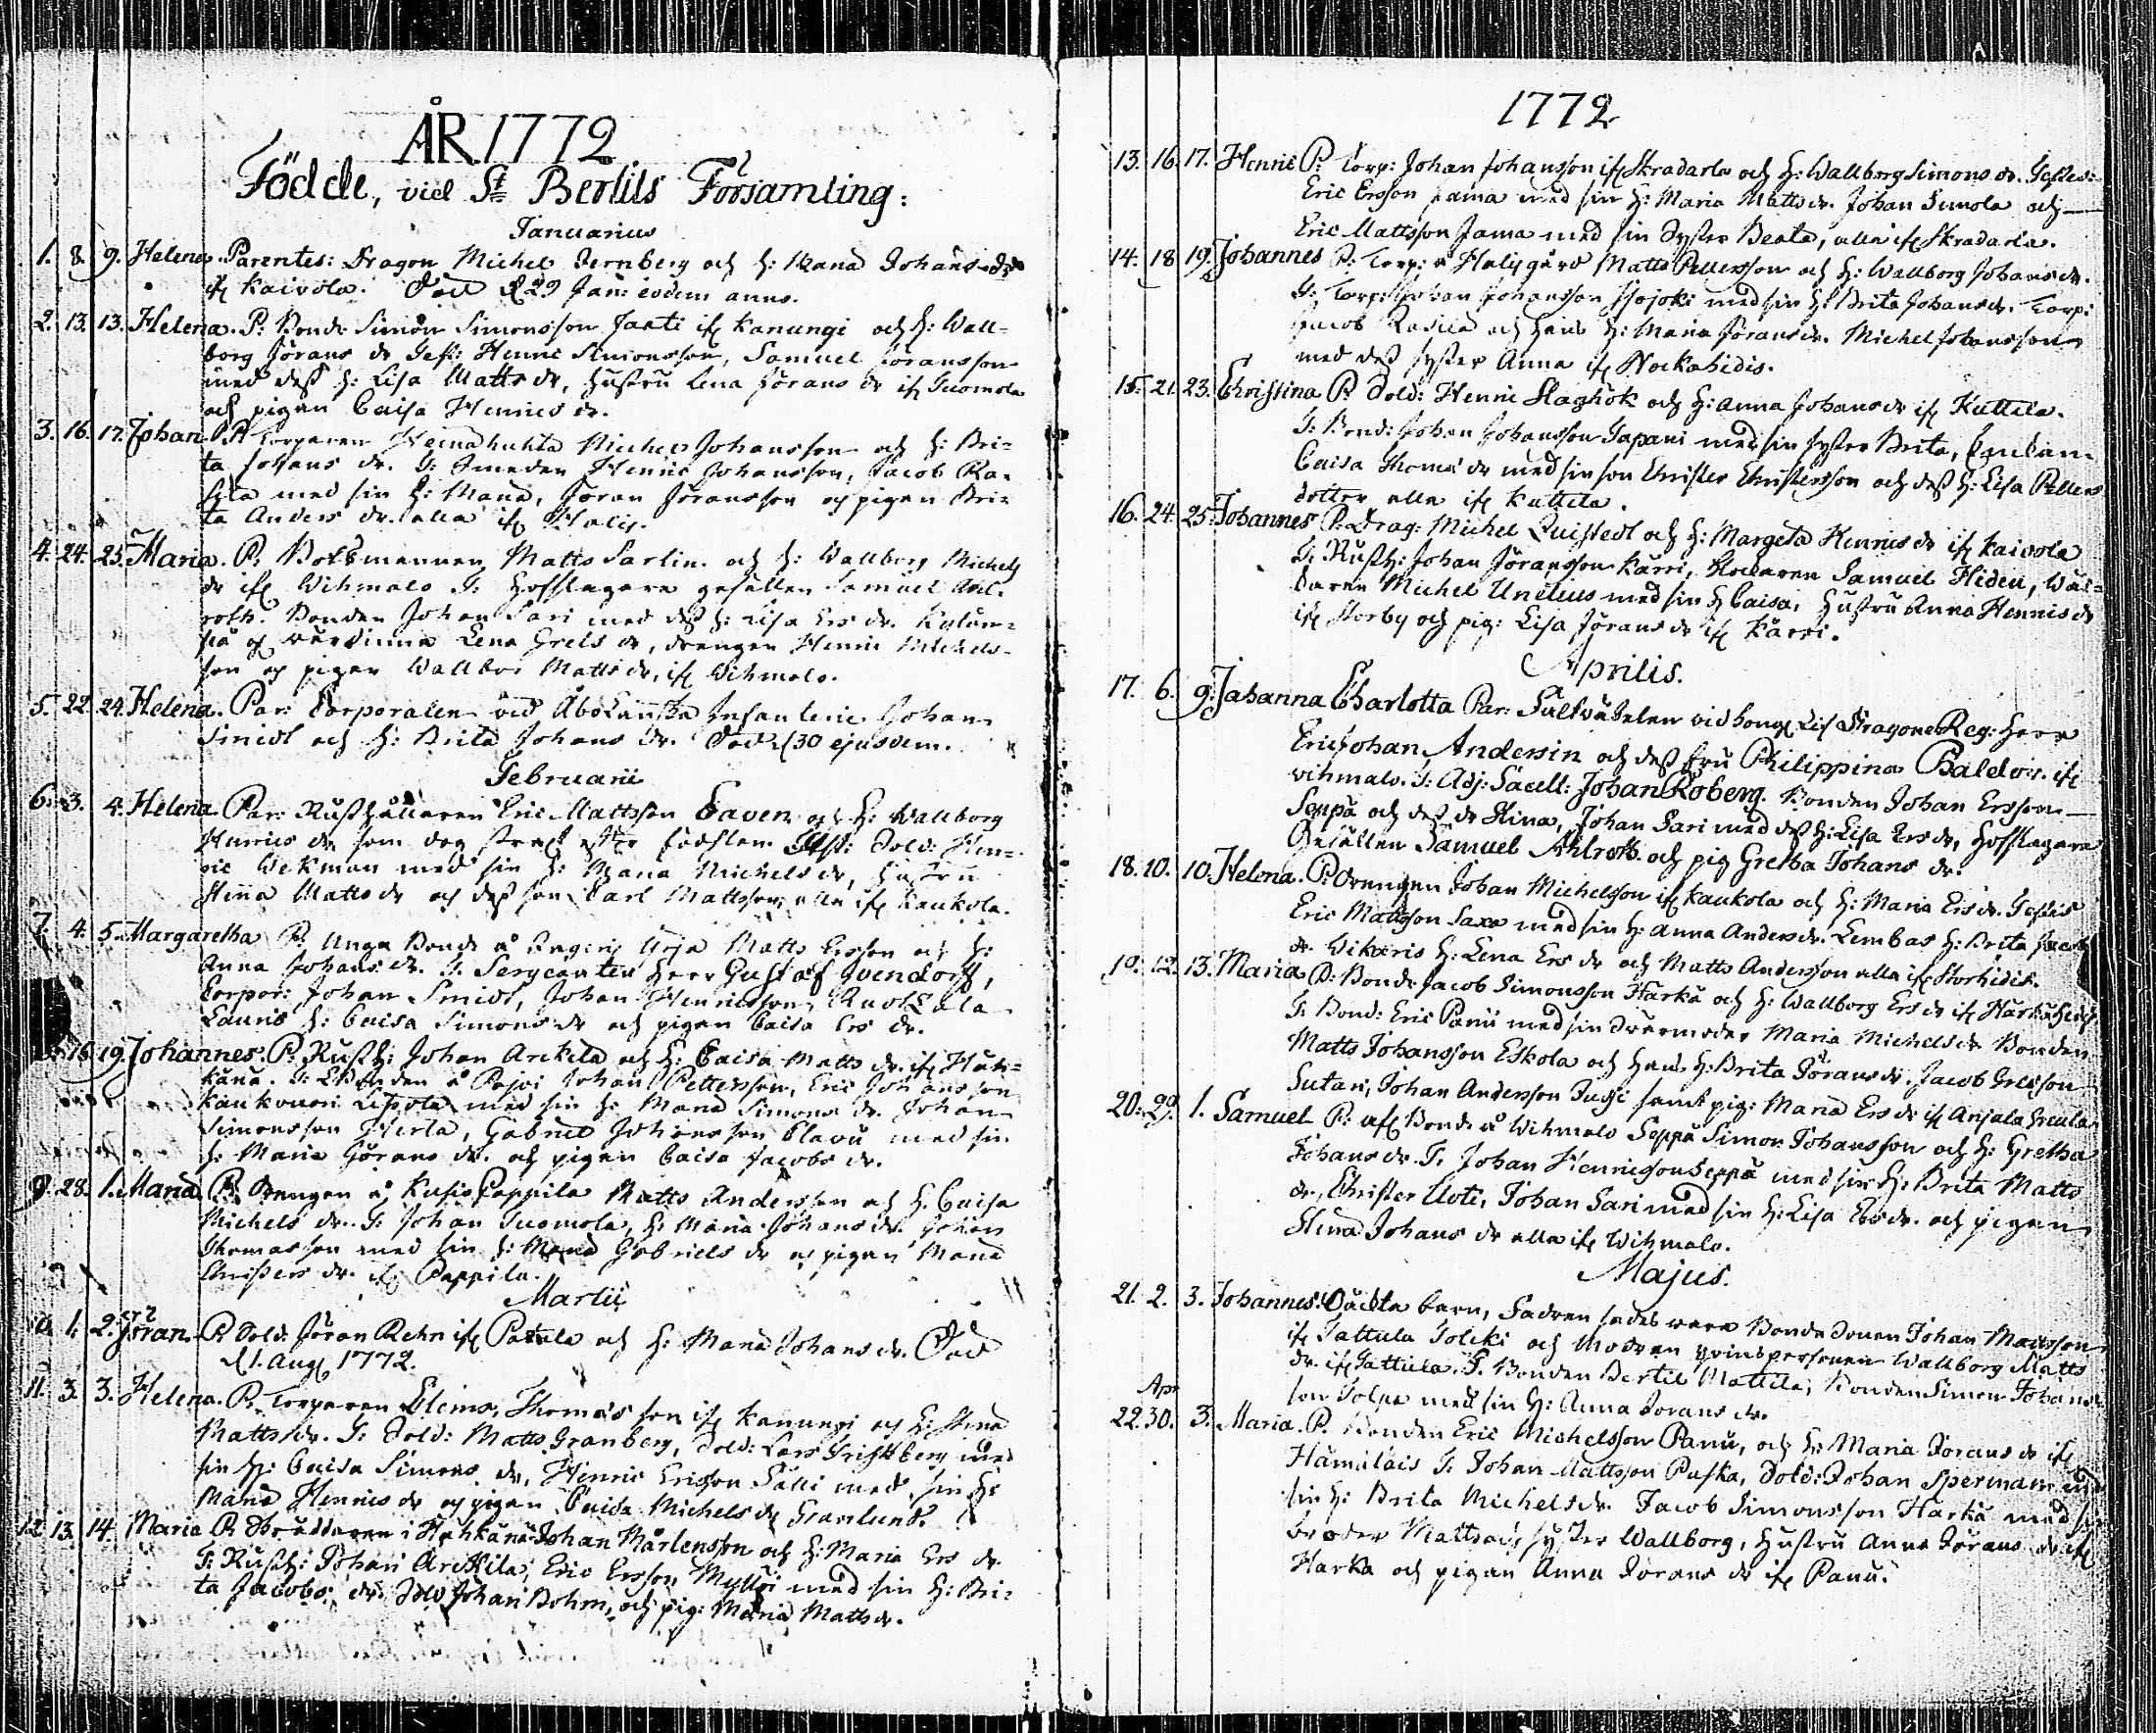 ÅR 1772
Födde, vid St Bertils Församling:
Januarius
1. 8. 9. Helena. Parentes: Dragon Michel Jernberg och h: Maria Johans dr
if Kaivola. Död d 29 Jan: eodem anno.
2. 13. 13. Helena. P: Bond: Simon Simonsson Jaati if Kanungi och h: Wall-
borg Jörans dr Test: Henric Simonsson, Samuel Göransson
med dess h: Lisa Matts dr, hustru Lena Jörans dr if Tuomola
och pigan Caisa Henrics dr.
3. 16. 17. Johan P: Torparen Heinähuhta Michel Johansson och h: Bri-
ta Johans dr. T: Smeden Henric Johansson, Jacob Ra-
sila med sin h: Maria, Jöran Jöransson och pigan Bri-
ta Anders dr. alla if Halis.
4. 24. 25. Maria. P: Båtsmannen Matts Sarlin och h: Wallborg Michels
dr if Wihmalo T: Hofslagare gesällen Samuel Ahl-
roth. Bonden Johan Sari med dess h: Lisa Ers dr.
och Lena Grels dr, drengen Henric Michels-
son och pigan Wallbor Matts dr, if Wihmalo.
5. 22. 24. Helena. Par: Corporalen vid Åbo Länska Infanterie Johan
Smidt och h: Brita Johans dr. Död d 30 ejusdem.
Februarii
6. 3. 4. Helena Par: Rusthållaren Eric Mattsson Saven och h: Wallborg
Henrics dr som dog strax efter födslen Test: Sold: Hen-
ric Wekman med sin h: Maria Michels dr, hustru
Stina Matts dr och dess son Carl Mattsson alla if Kaukola.
7. 4. 5. Margaretha P: Unga Bond: å Matts Ersson och h:
Anna Johans dr. T: Sergeanten Herr Gustaf
Corpor: Johan Smidt, Johan Henricsson,
Lauris h: Caisa Simons dr och pigan Caisa Ers dr.
18. 19. Johannes. P: Rusth: Johan Arckila och h: Caisa Matts dr. if Hah-
känä. T: Bonden å Johan Pettersson, Eric Johansson
med sin h: Maria Simons dr. Johan
Simonsson Gabriel Johansson med sin
h: Maria Görans dr. och pigan Caisa Jacobs dr.
9. 28. 1. Maria P: Drengen å Pappila Matts Andersson och h: Caisa
Michels dr. T: Johan Tuomola, h: Maria Johans dr. Johan
Thomasson med sin h: Maria Gabriels dr och pigan Maria
Christers dr. if Pappila.
Martii
10. 1. 2. Jöran. P: Sold: Jöran Rehn if Patala och h: Maria Johans dr. Död
d 1. Aug 1772.
11. 3. 3. Helena. P: Torparen Clemes Thomas son if Kanungi och h: Stina
Matts dr. T: Sold: Matts Granberg, Sold: Lars med
sin h: Caisa Simons dr, Henric Ersson Sälli med sin h:
Maria Henrics dr och pigan Caisa Michels dr Granlund.
12. 13. 14. Maria P: i Hahkänä Johan Mårtensson och h: Maria Ers dr.
T: Rusth: Johan Arckila, Eric Ersson Mylläri med sin h: Bri-
ta Jacobs dr. Sold Johan Bohm, och pig: Maria Matts dr.
1772
13. 16. 17. Henric P: Torp: Johan Johansson if Skradarla och h: Wallborg Simons dr. Testes:
Eric Ersson Jama med sin h: Maria Matts dr. Johan Simola och
Eric Mattsson Jama med sin Syster Beata, alla if Skradarla.
14. 18 19. Johannes P: Torp: å Halis gård Matts Pettersson och h: Wallborg Johans dr.
T: Torp: Johan Johansson Isojoki med sin h: Brita Johans dr. Torp:
Jacob Rasila och hans h: Maria Jörans dr. Michel Johansson
med dess syster Anna if Nockahidis.
15. 21. 23. Christina P: Sold: Henric Slaghök och h: Anna Johans dr if Kuttila.
T: Bond: Johan Johansson Gapani med sin syster Brita,
Caisa Thomæ dr med sin son Christer Christersson och dess h: Lisa Petters
dotter alla if Kuttila.
16. 24. 25. Johannes P: Drag: Michel Quistedt och h: Margeta Henrics dr if Kaivola
T: Rusth: Johan Jöransson Kärri, Klockaren Samuel Hiden,
Michel Unelius med sin h Caisa, hustru Anna Henrics dr
if Storby och pig: Lisa Jörans dr if Kärri.
Aprilis.
17. 6. 9. Johanna Charlotta Par: Fältväbelen vid Kongl Lif Dragone Reg: Herr
Eric Johan Andersin och dess fru Philippina Baldor if
Wihmalo. T: Adj: Sacell: Johan Roberg. Bonden Johan Ersson
Seppä och dess dr Stina, Johan Sari med dess h: Lisa Ers dr, Hofslagare
Gesällen Samuel Ahlroth och pig Gretha Johans dr.
18. 10. 10. Helena. P: Drengen Johan Michelsson if Kaukola och h: Maria Ers dr. Testes
Eric Mattsson Saxa med sin h: Anna Anders dr. Lembas h: Brita Jacobs
dr. Wikaris h: Lena Ers dr och Matts Andersson alla if Storhidis.
19. 12. 13. Maria P: Bond: Jacob Simonsson Harka och h: Wallborg Ers dr if
T: Bond: Eric Panu med sin Svärmoder Maria Michels dr Bonden
Matts Johansson Eskola och hans h: Brita Jörans dr. Jacob Grelsson
Sutari, Johan Andersson Jussi samt pig: Maria Ers dr if Anjala
20. 29. 1. Samuel P: af Bond: å Wihmalo Seppä Simon Johansson och h: Gretha
Johans dr. T: Johan Henricsson Seppä med sin h: Brita Matts
dr, Christer Uoti, Johan Sari med sin h: Lisa Ers dr. och pigan
Stina Johans dr alla if Wihmalo.
Majus.
21. 2. 3. Johannes. Oäckta barn, Fadren sades vara Bonde Sonen Johan Mattsson
if Tattula och Modren qvinspersonen Wallborg Matts
dr. if Tattula. T: Bonden Bertil Mattila, Bonden Simon Johans
son Tolpa med sin h: Anna Jörans dr.
Apr
22. 30. 3. Maria. P. Bonden Eric Michelsson Panu, och h: Maria Jörans dr if
Hämäläis T: Johan Mattsson Paska, Sold: Johan Sperman med
sin h: Brita Michels dr. Jacob Simonsson Harka med sin
broder Matts och syster Wallborg, hustru Anna Jörans dr if
Harka och pigan Anna Jorans dr if Panu.